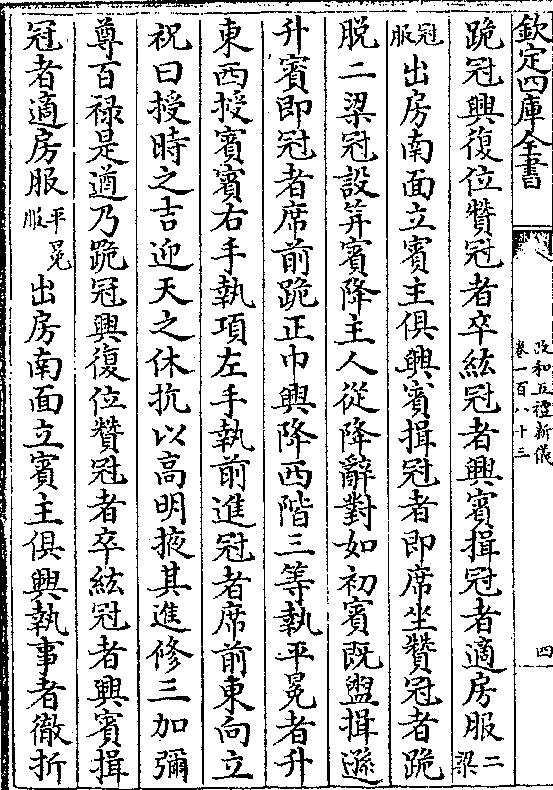 欽定四庫全書
政和五禮新儀
卷一百八十三
四
跪冠興復位贊冠者卒紘冠者興賓揖冠者適房服二梁
冠服出房南面立賓主俱興賓揖冠者即席坐贊冠者跪
脱二梁冠設笄賓降主人從降辭對如初賓既盥揖遜
升賓即冠者席前跪正巾興降西階三等執平冕者升
東西授賓賓右手執項左手執前進冠者席前東向立
祝曰授時之吉迎天之休抗以高明掖其進修三加彌
尊百禄是遒乃跪冠興復位贊冠者卒紘冠者興賓揖
冠者適房服平冕服出房南面立賓主俱興執事者徹折